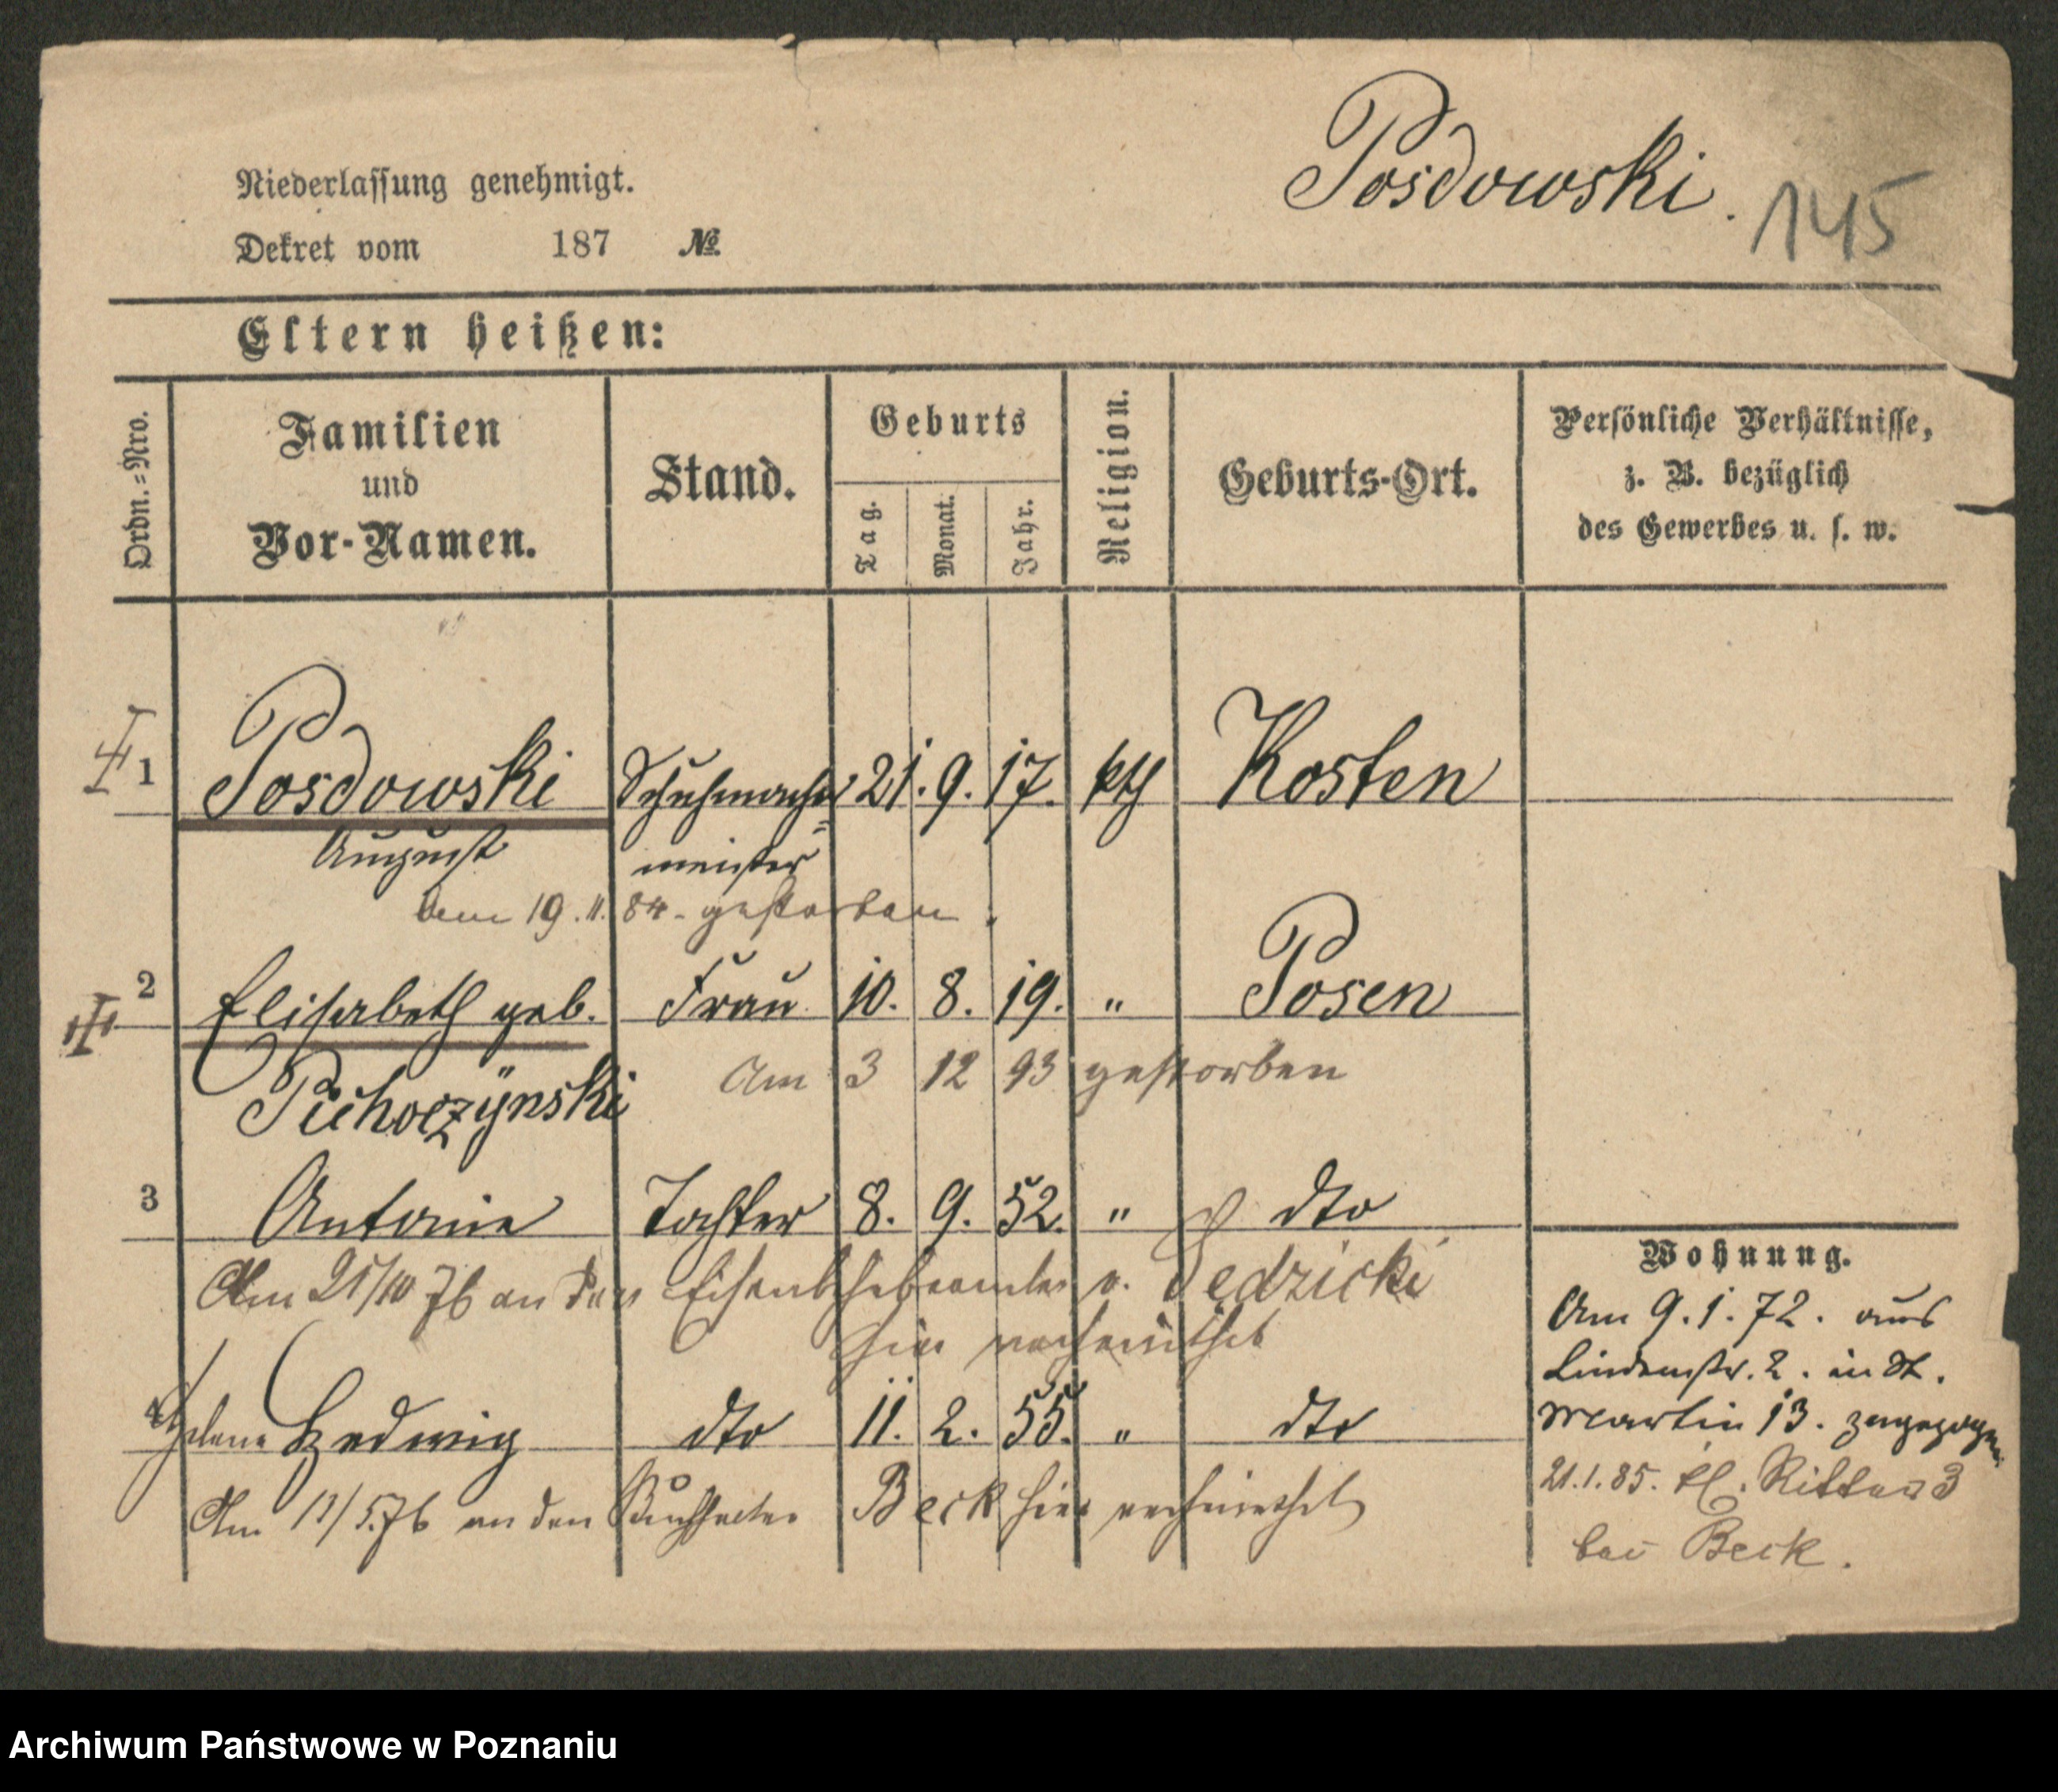 Posdowski. 145
Niederlassung genehmigt.
Dekret vom 187 №
Eltern heißen:
Ordn.-Nro.
Familien
und
Vor-Namen.
Stand.
Geburts
Tag.
Monat.
Jahr.
Religion.
Geburts-Ort.
Persönliche Verhältnisse,
z. B. bezüglich
des Gewerbes u. s. w.
1 Posdowski Schuhmacher= 21. 9. 17. kth Kosten
August meister
Am 19. 11. 84. gestorben.
2 Elisabeth geb. Frau 10. 8. 19. " Posen
Pichoczÿnski
Am 3 12 93 gestorben
3 Antonie Tochter 8. 9. 52. " dto
Am 21/10 76 an den Eisenb v. Dedzicki
hier verheirathet
4 Helene Hedwig dto 11. 2. 55. " dto
Am 11/5.76 an den Buchhalter Beck hier verheirathet
Wohnung.
Am 9. 1. 72. aus
Lindenstr. 2. in St.
Martin 13. zugezogen.
21. 1. 85. kl. Ritter 3
bei Beck.
Archiwum Państwowe w Poznaniu